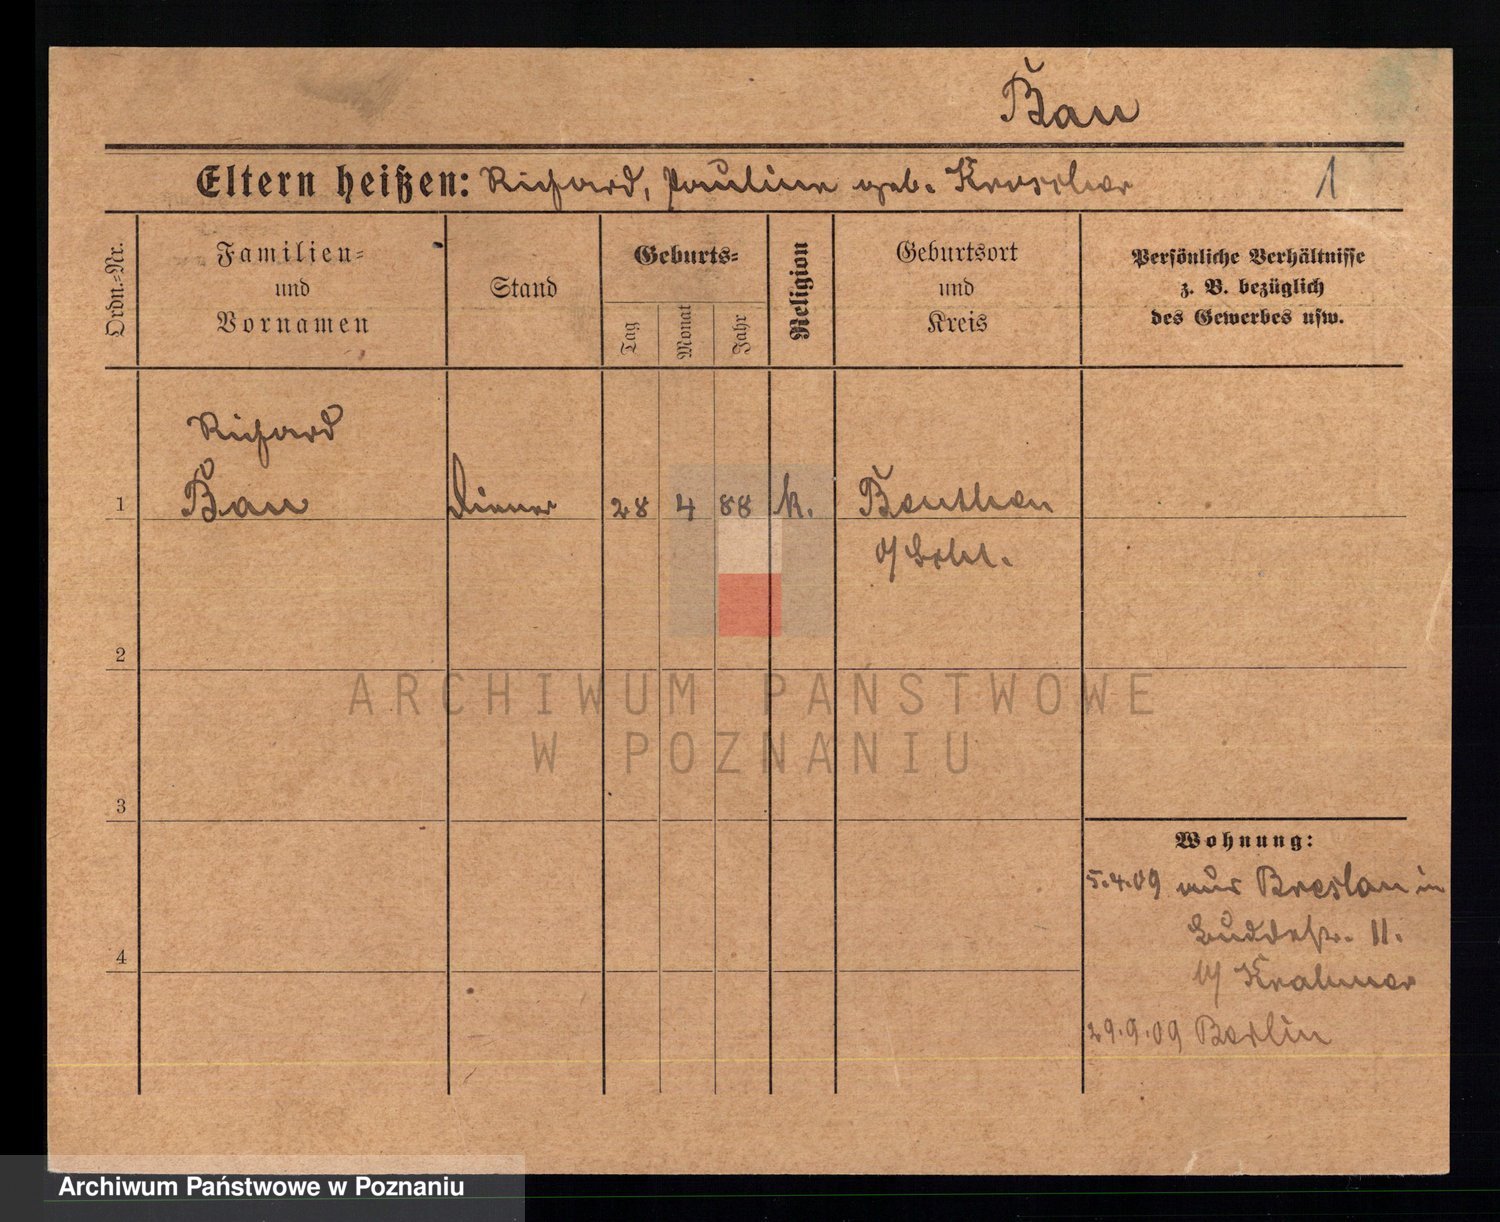 Bau
Eltern heißen: Richard, Pauline geb. 1
Ordn.-Nr.
Familien-
und
Vornamen
Stand
Geburts-
Tag
Monat
Jahr
Religion
Geburtsort
und
Kreis
Persönliche Verhältnisse
z. B. bezüglich
des Gewerbes usw.
Richard
1 Bau Diener 28 4 88 k. Beuthen
o/Schl.
2
ARCHIWUM PAŃSTWOWE
W POZNANIU
3
Wohnung:
5.4.09 aus Breslau in
Buddestr. 11.
4
b/ Krahmer
29.9.09 Berlin
Archiwum Państwowe w Poznaniu